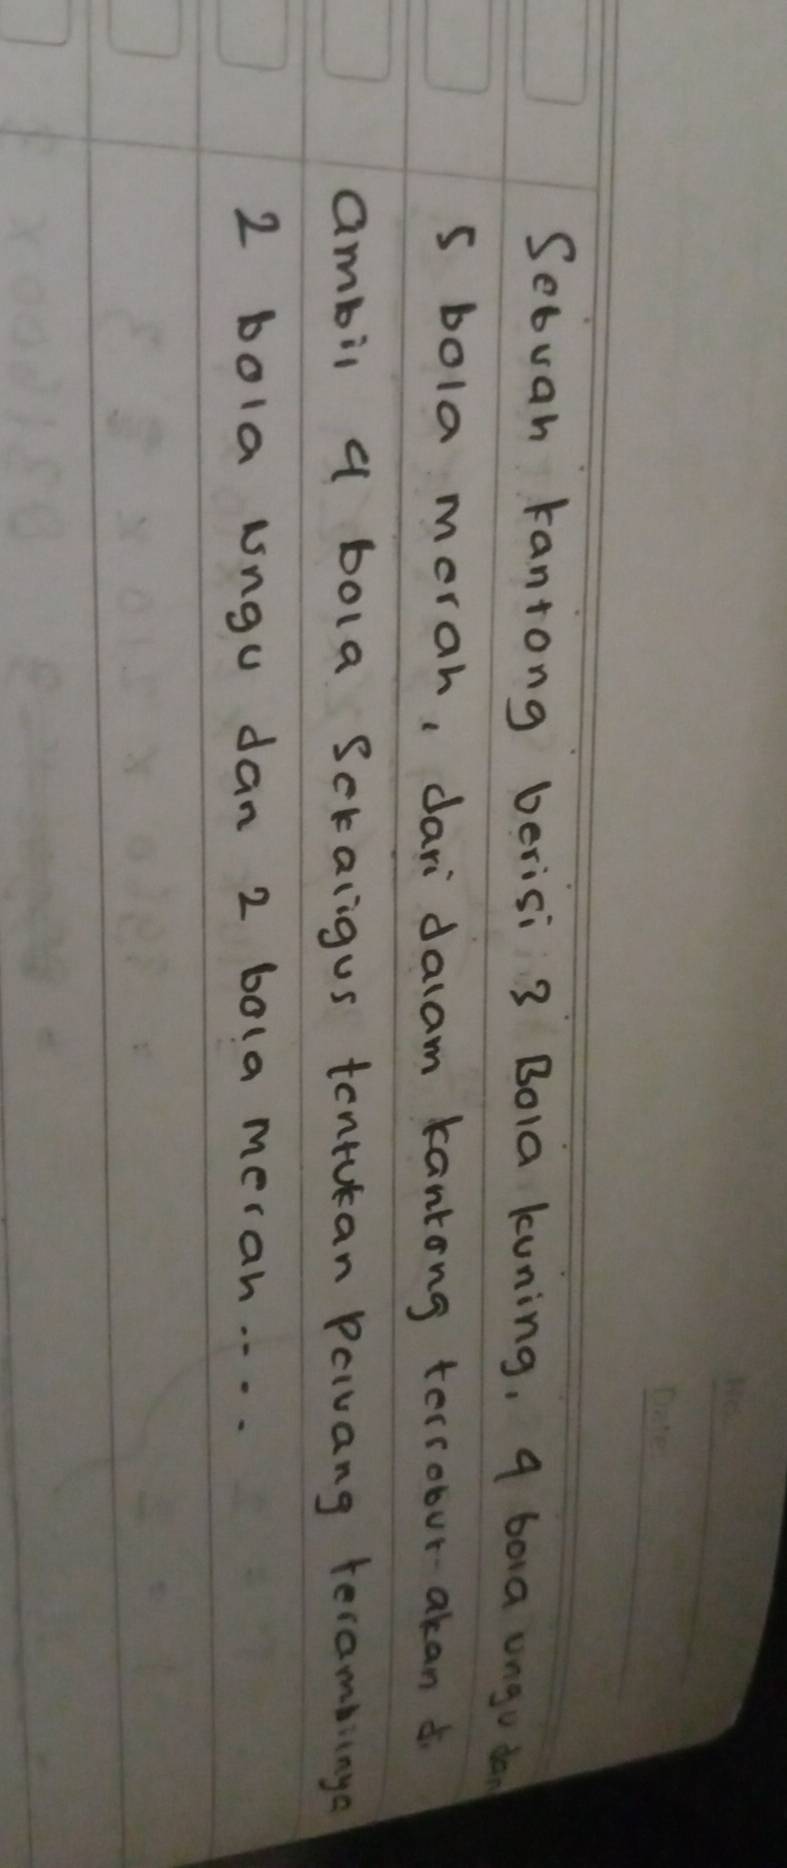 No.
Date
Sebuah kantong berisi 3 Bola kuning, 4 bola ungu dan
5 bola merah, dari dalam kantong tersebut akan di
ambil 4 bola sekaligus tentukan peluang terambilnya
2 bola ungu dan 2 bola merah....